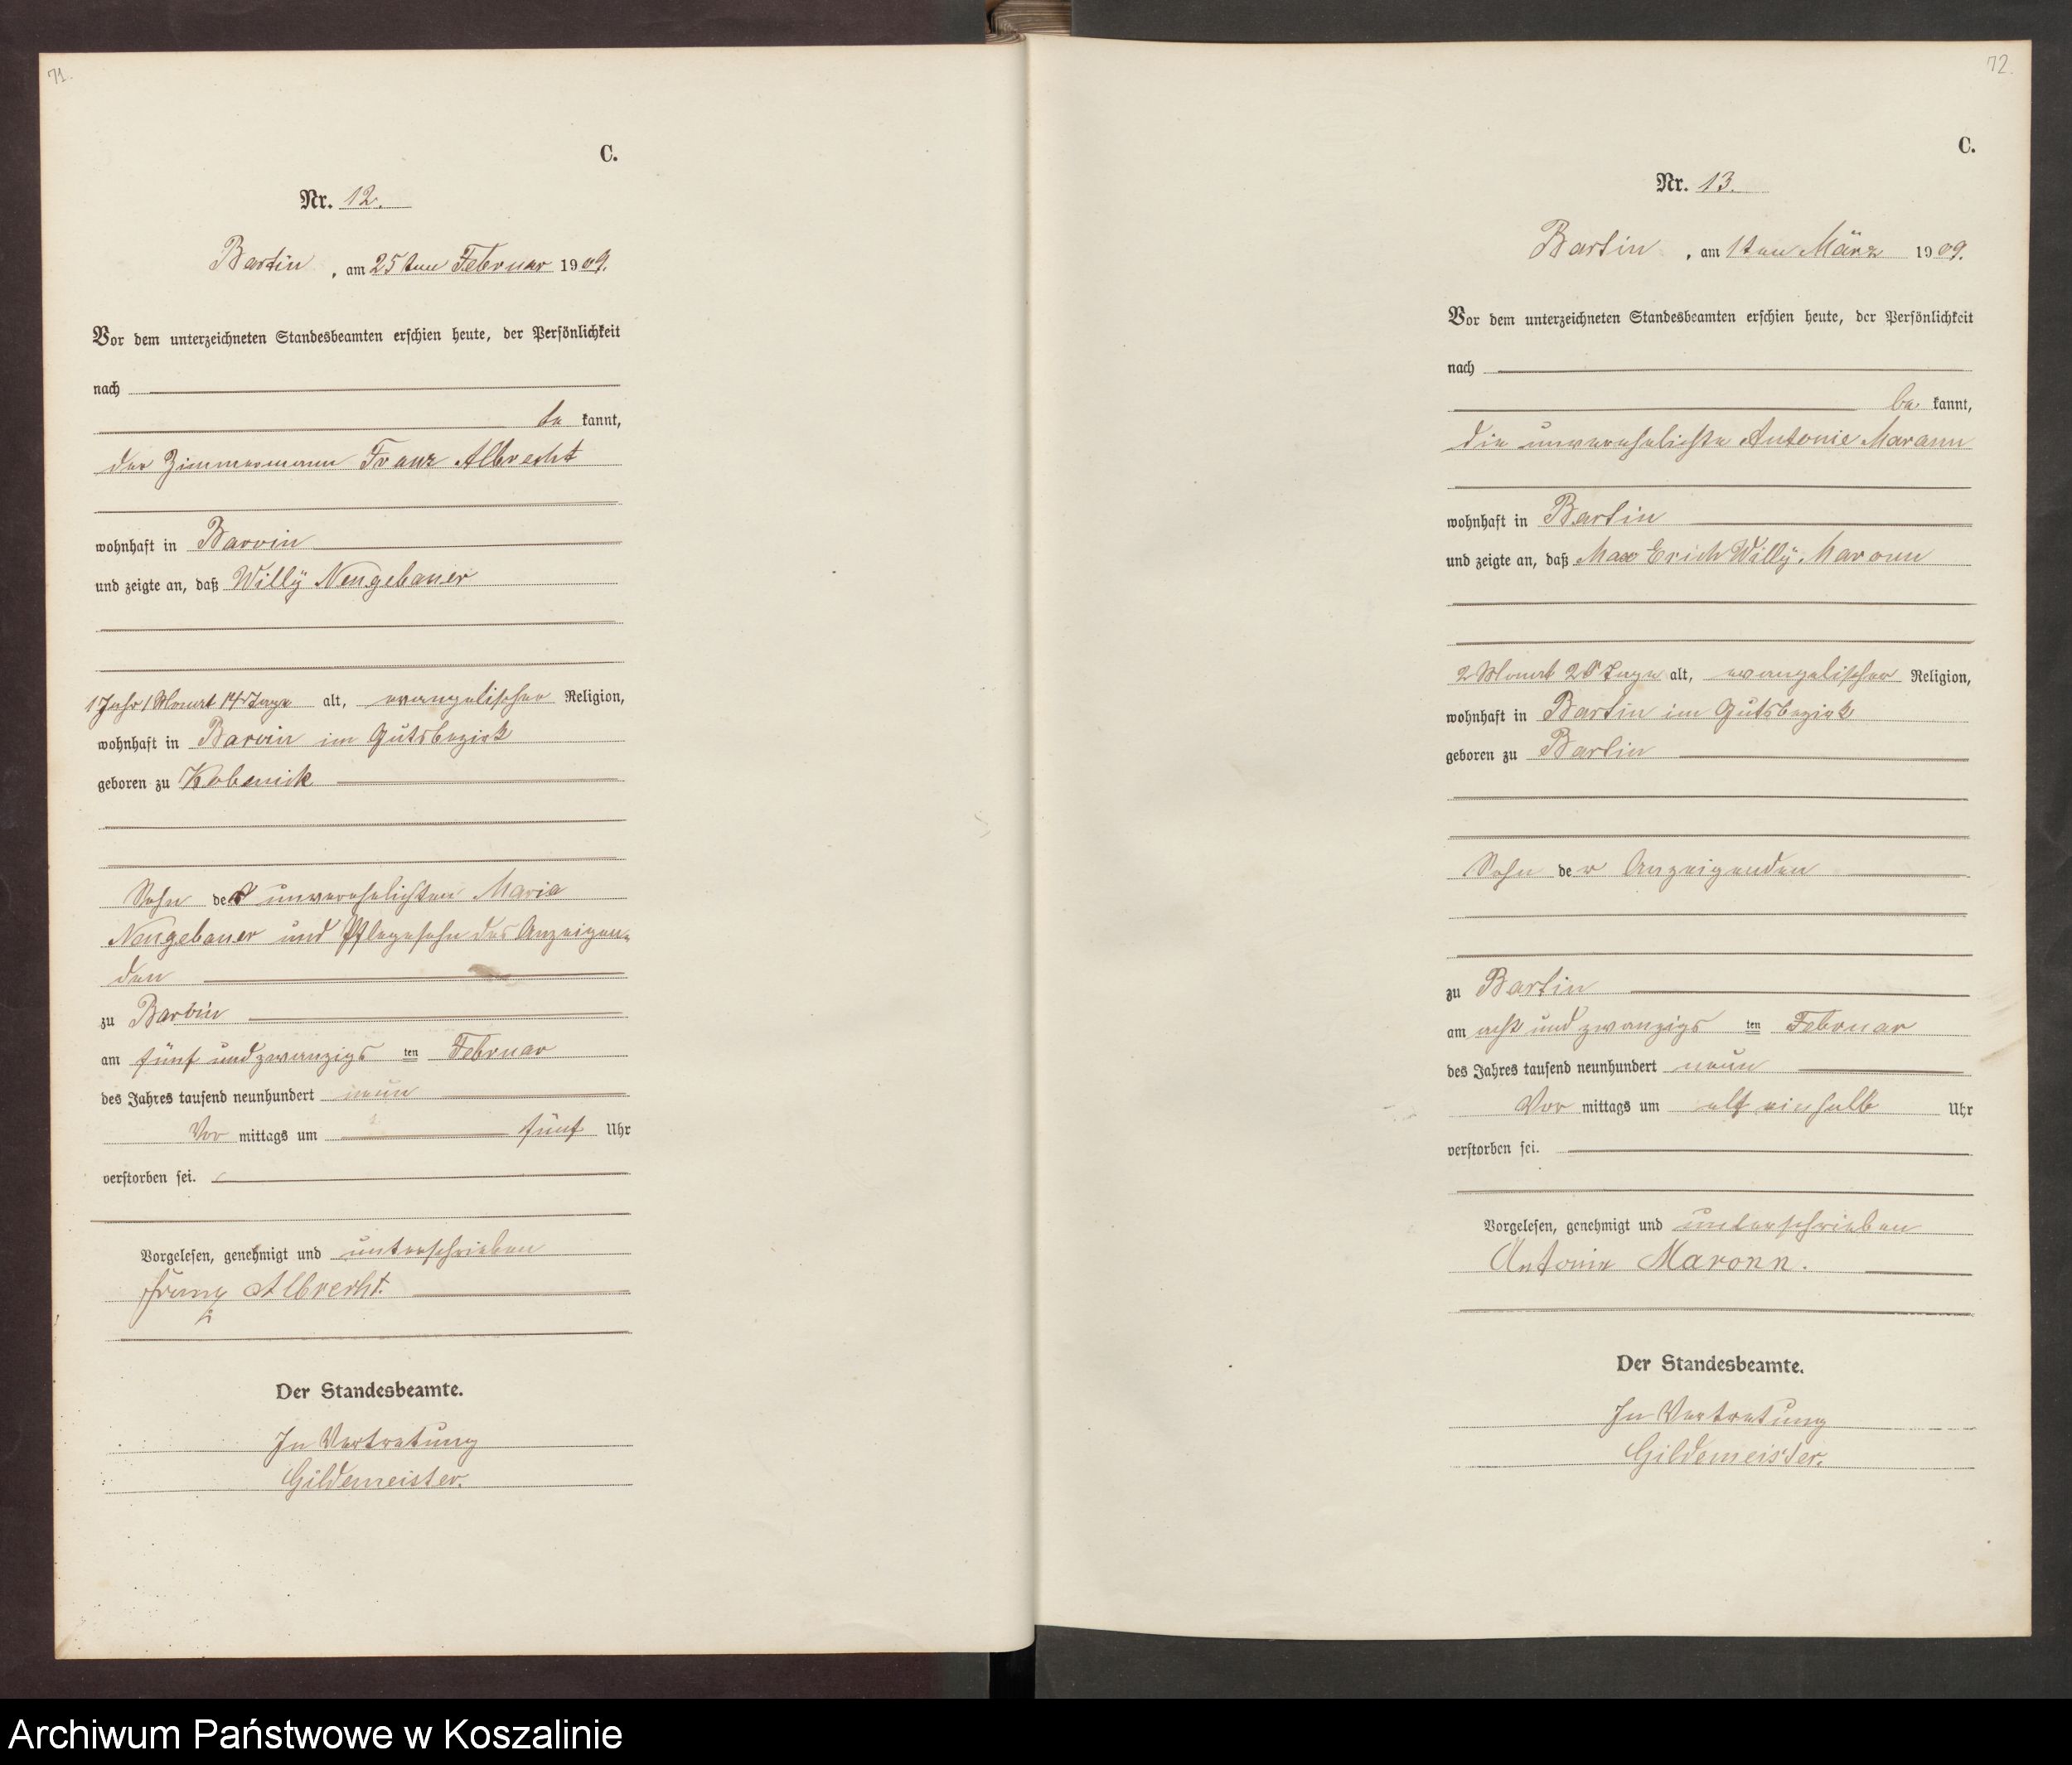 71.
C.
Nr. 12.
Bartin, am 25ten Februar 1909.
Vor dem unterzeichneten Standesbeamten erschien heute, der Persönlichkeit
nach
be kannt,
der Zimmermann Franz Albrecht
wohnhaft in Barvin
und zeigte an, daß Willÿ Neugebauer
1 Jahr 1 Monat 14 Tage alt, evangelischer Religion,
wohnhaft in Barvin im Gutsbezirk
geboren zu
Sohn der unverehelichten Maria
Neugebauer und Pflegesohn des Anzeigen-
den
zu Barvin
am fünf und zwanzigs ten Februar
des Jahres tausend neunhundert neun
Vor mittags um fünf Uhr
verstorben sei.
Vorgelesen, genehmigt und unterschrieben
Franz Albrecht.
Der Standesbeamte.
In Vertretung
Gildemeister.
72.
C.
Nr. 13.
Bartin, am 1ten März 1909.
Vor dem unterzeichneten Standesbeamten erschien heute, der Persönlichkeit
nach
be kannt,
die unverehelichte Antonie Maronn
wohnhaft in Bartin
und zeigte an, daß Max Erich Willÿ Maronn
2 Monat 20 Tage alt, evangelischer Religion,
wohnhaft in Bartin im Gutsbezirk
geboren zu Bartin
Sohn der Anzeigenden
zu Bartin
am acht und zwanzigs ten Februar
des Jahres tausend neunhundert neun
Vor mittags um elf einhalb Uhr
verstorben sei.
Vorgelesen, genehmigt und unterschrieben
Antonie Maronn.
Der Standesbeamte.
In Vertretung
Gildemeister.
Archiwum Państwowe w Koszalinie